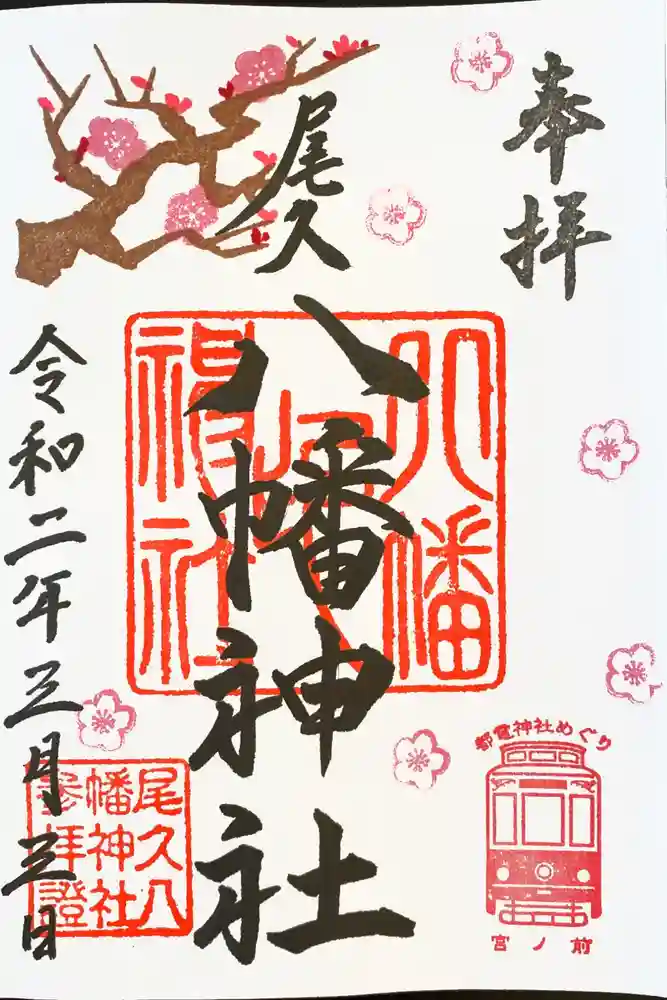 奉拝
尾久
八幡神社
令和二年三月三日
八幡
神社
尾久八
幡神社
参拝證
都電神社めぐり
宮ノ前